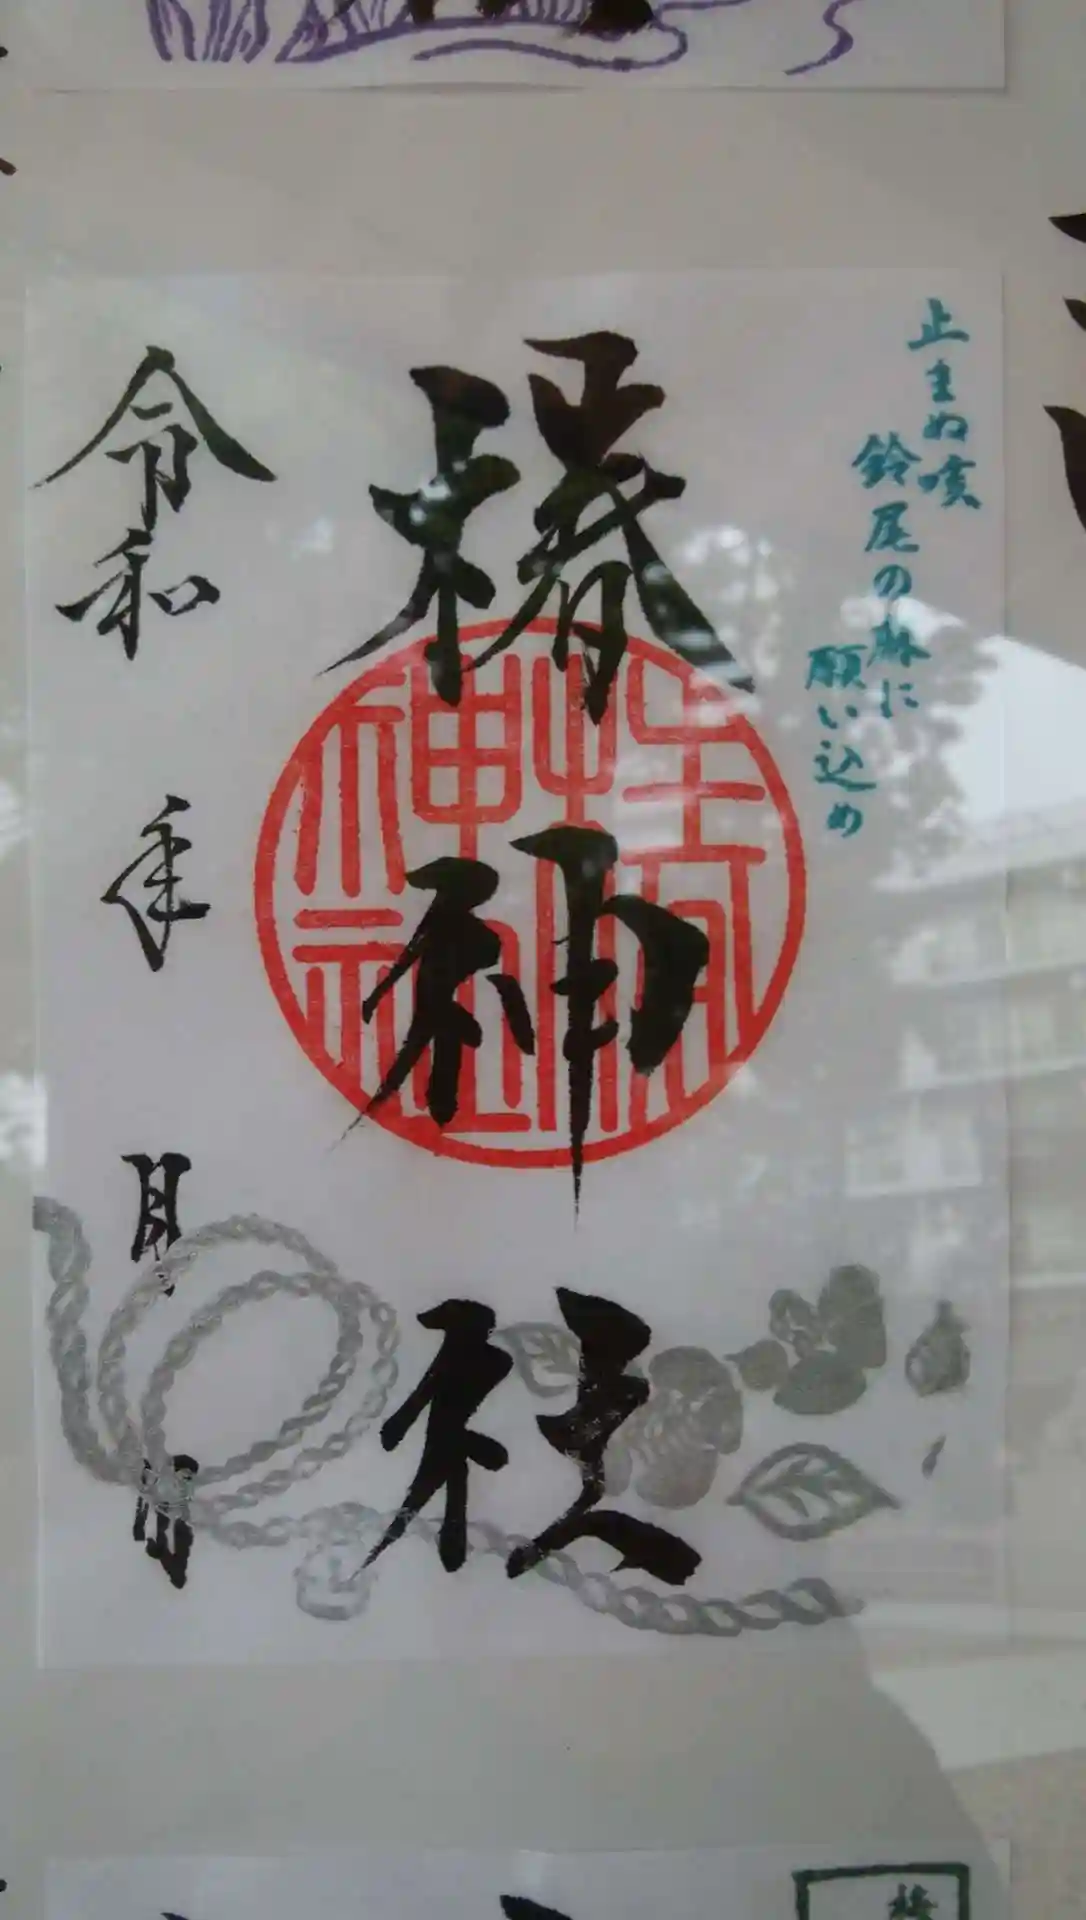 止まぬ咳
鈴尾の麻に
願い込め
椿神社
椿神社
令和 年 月 日